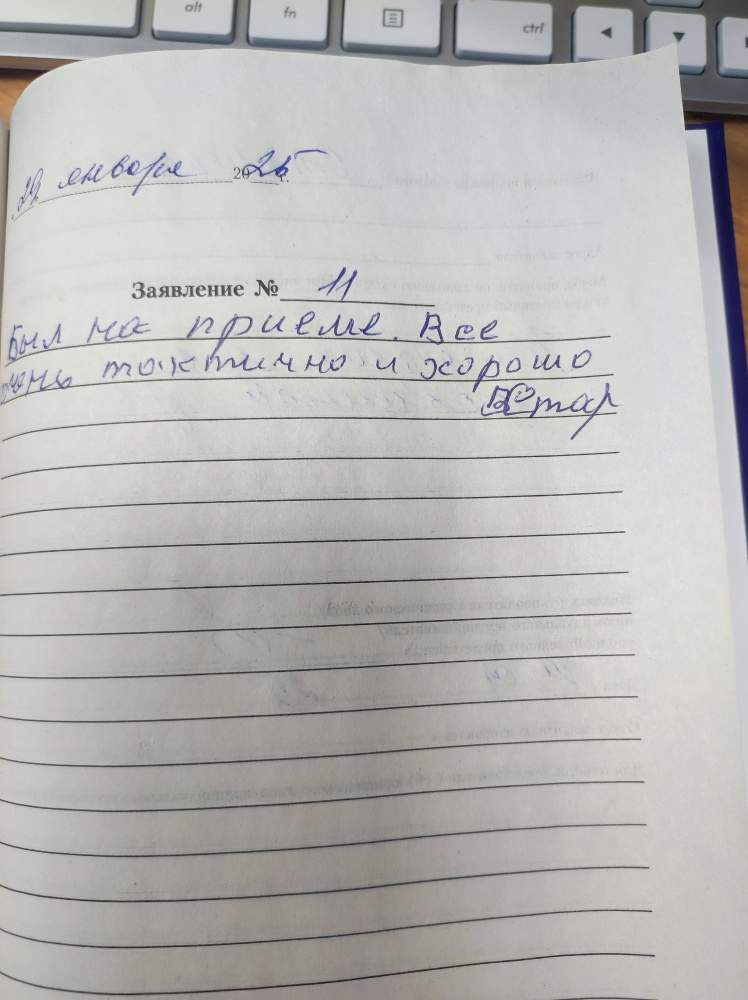 alt
fn
ctrl
29 января 2025 г.
Заявление № 11
Был на приеме. Все
очень тактично и хорошо